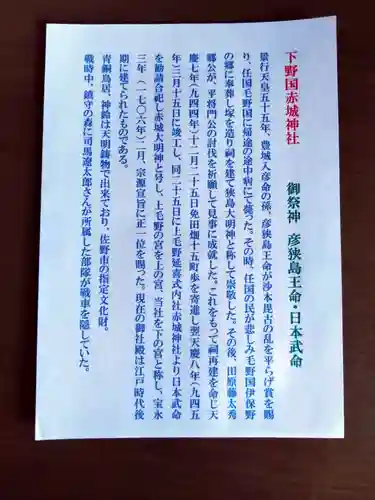 下野国赤城神社　御祭神　彦狭島王命・日本武命
景行天皇五十五年、豊城入彦命の孫、彦狭島王命が沙本毘古の乱を平らげ賞を賜
り、任国毛野国に帰途の途中病にて薨った。その時、任国の民が悲しみ毛野国伊保野
の郷に奉葬し塚を造り祠を建て狭島大明神と称して崇敬した。その後、田原藤太秀
郷公が、平将門公の討伐を祈願して見事に成就した。これをもって祠再建を命じ天
慶七年（九四四年）十二月二十五日免田畑十五町歩を寄進し翌天慶八年（九四五
年）三月十五日に竣工し、同二十五日に上毛野延喜式内社赤城神社より日本武命
を勧請合祀し赤城大明神と号し、上毛野の宮を上の宮、当社を下の宮と称し、宝永
三年（一七〇六年）二月、宗源宣旨に正一位を賜った。現在の御社殿は江戸時代後
期に建てられたものである。
青銅鳥居、神鈴は天明鋳物で出来ており、佐野市の指定文化財。
戦時中、鎮守の森に司馬遼太郎さんが所属した部隊が戦車を隠していた。